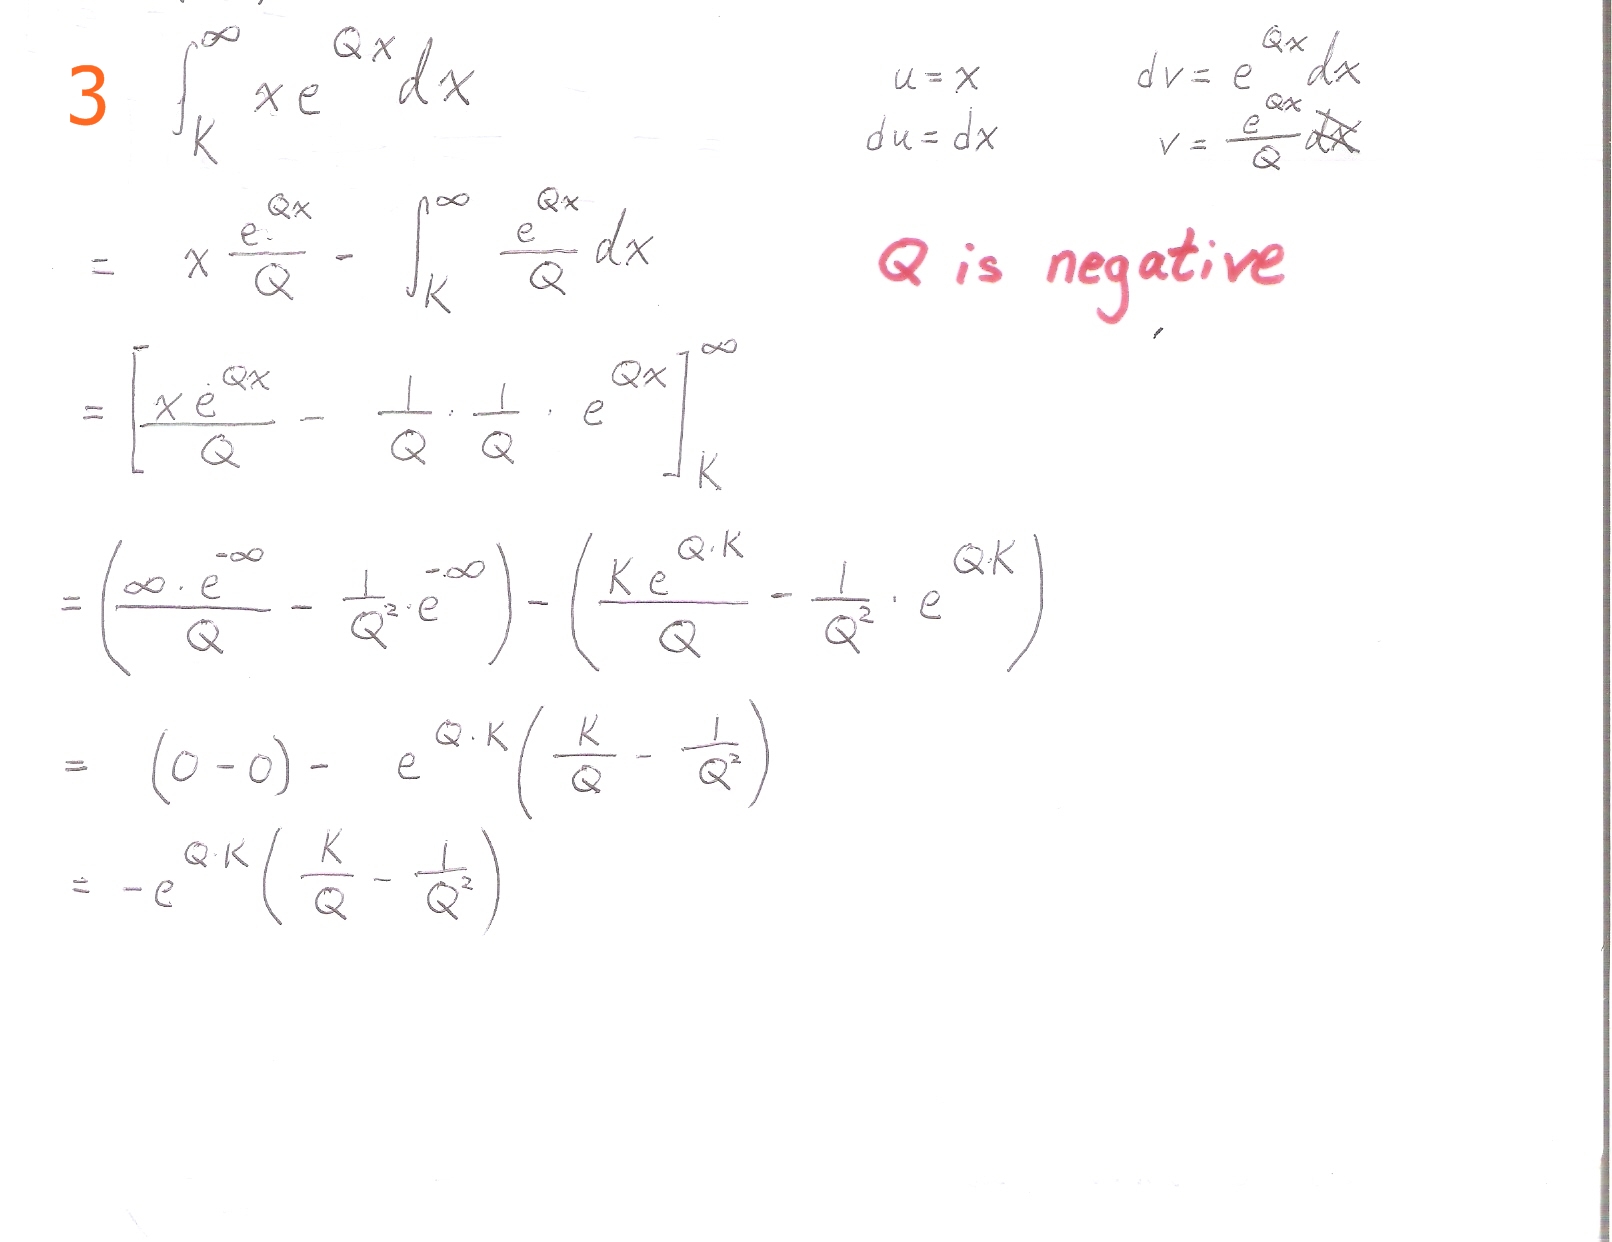 3 ∫_K^∞ x e^{Qx} dx
u = x    dv = e^{Qx} dx
du = dx    v = e^{Qx}/Q
= x e^{Qx}/Q - ∫_K^∞ e^{Qx}/Q dx
Q is negative
= [x e^{Qx}/Q - 1/Q · 1/Q · e^{Qx}]_K^∞
= (∞·e^{-∞}/Q - 1/Q² · e^{-∞}) - (K e^{Q·K}/Q - 1/Q² · e^{Q·K})
= (0-0) - e^{Q·K} (K/Q - 1/Q²)
= -e^{Q·K} (K/Q - 1/Q²)